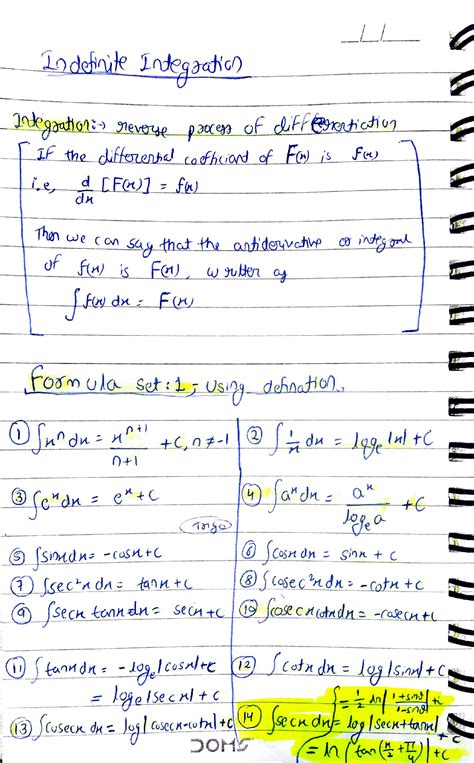 Indefinite Integration
Integration:→ reverse process of differentiation
If the differential cofficiant of F(x) is f(x)
i.e, d/dx [F(x)] = f(x)
Then we can say that the antiderivative or integral
of f(x) is F(x), written as
∫f(x) dx = F(x)
Formula set:1, using defination.
① ∫xⁿ dx = xⁿ⁺¹/n+1 + C, n ≠ -1
② ∫ 1/x dx = logₑ |x| + C
③ ∫eˣ dx = eˣ + C
④ ∫aˣ dx = aˣ/logₑ a + C
⑤ ∫sinx dx = -cosx + C
⑥ ∫cosx dx = sinx + C
⑦ ∫sec²x dx = tanx + C
⑧ ∫cosec²x dx = -cotx + C
⑨ ∫secx tanx dx = secx + C
⑩ ∫cosecx cotx dx = -cosecx + C
⑪ ∫tanx dx = -logₑ |cosx| + C
= logₑ |secx| + C
⑫ ∫cotx dx = log |sinx| + C
⑬ ∫cosecx dx = log |cosecx - cotx| + C
∫ = 1/2 ln |1+sinθ/1-sinθ| + c
⑭ ∫secx dx = log |secx + tanx| + C
= ln |tan(x/2 + π/4)| + C
DOMS